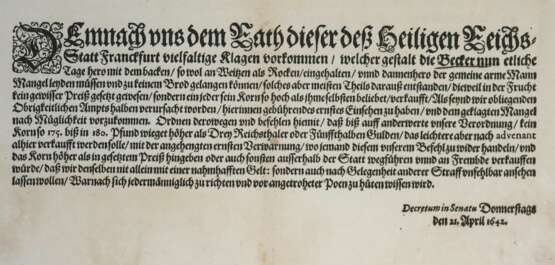 DEmnach vns dem Rath dieser deß Heiligen Reichs-
Statt Franckfurt vielfaltige Klagen vorkommen / welcher gestalt die Becker nun etliche
Tage hero mit dem backen / so wol an Weitzen als Rocken / eingehalten / vnnd dannenhero der gemeine arme Mann
Mangel leyden müssen vnd zu keinem Brod gelangen können / solches aber meisten Theils darauß entstanden / dieweil in der Frucht
kein gewisser Preiß gesetzt gewesen / sondern ein jeder sein Korn so hoch als ihme selbsten beliebet / verkaufft: Als seynd wir obliegenden
Obrigkeitlichen Ampts halben verursacht worden / hierinnen gebührendes ernstes Einsehen zu haben / vnd dem geklagten Mangel
nach Müglichkeit vorzukommen. Ordnen derowegen vnd befehlen hiemit / daß biß auff anderwerte vnsere Verordnung / kein
Korn so 175. biß in 180. Pfund wieget höher als Drey Reichsthaler oder Fünffthalben Gulden / das leichtere aber nach advenant
allhier verkaufft werden solle / mit der angehengten ernsten Verwarnung / wo jemand diesem vnserem Befehl zu wider handeln / vnd
das Korn höher als in gesetztem Preiß hingeben oder auch sonsten ausserhalb der Statt wegführen vnnd an Frembde verkauffen
würde / daß wir denselben mit allein mit einer nahmhafften Gelt: sondern auch nach Gelegenheit anderer Straff vnfehlbar ansehen
lassen wollen / Warnach sich jedermänniglich zu richten vnd vor angetroheter Poen zu hüten wissen wird.
Decretum in Senatu Donnerstags
den 21. April 1642.